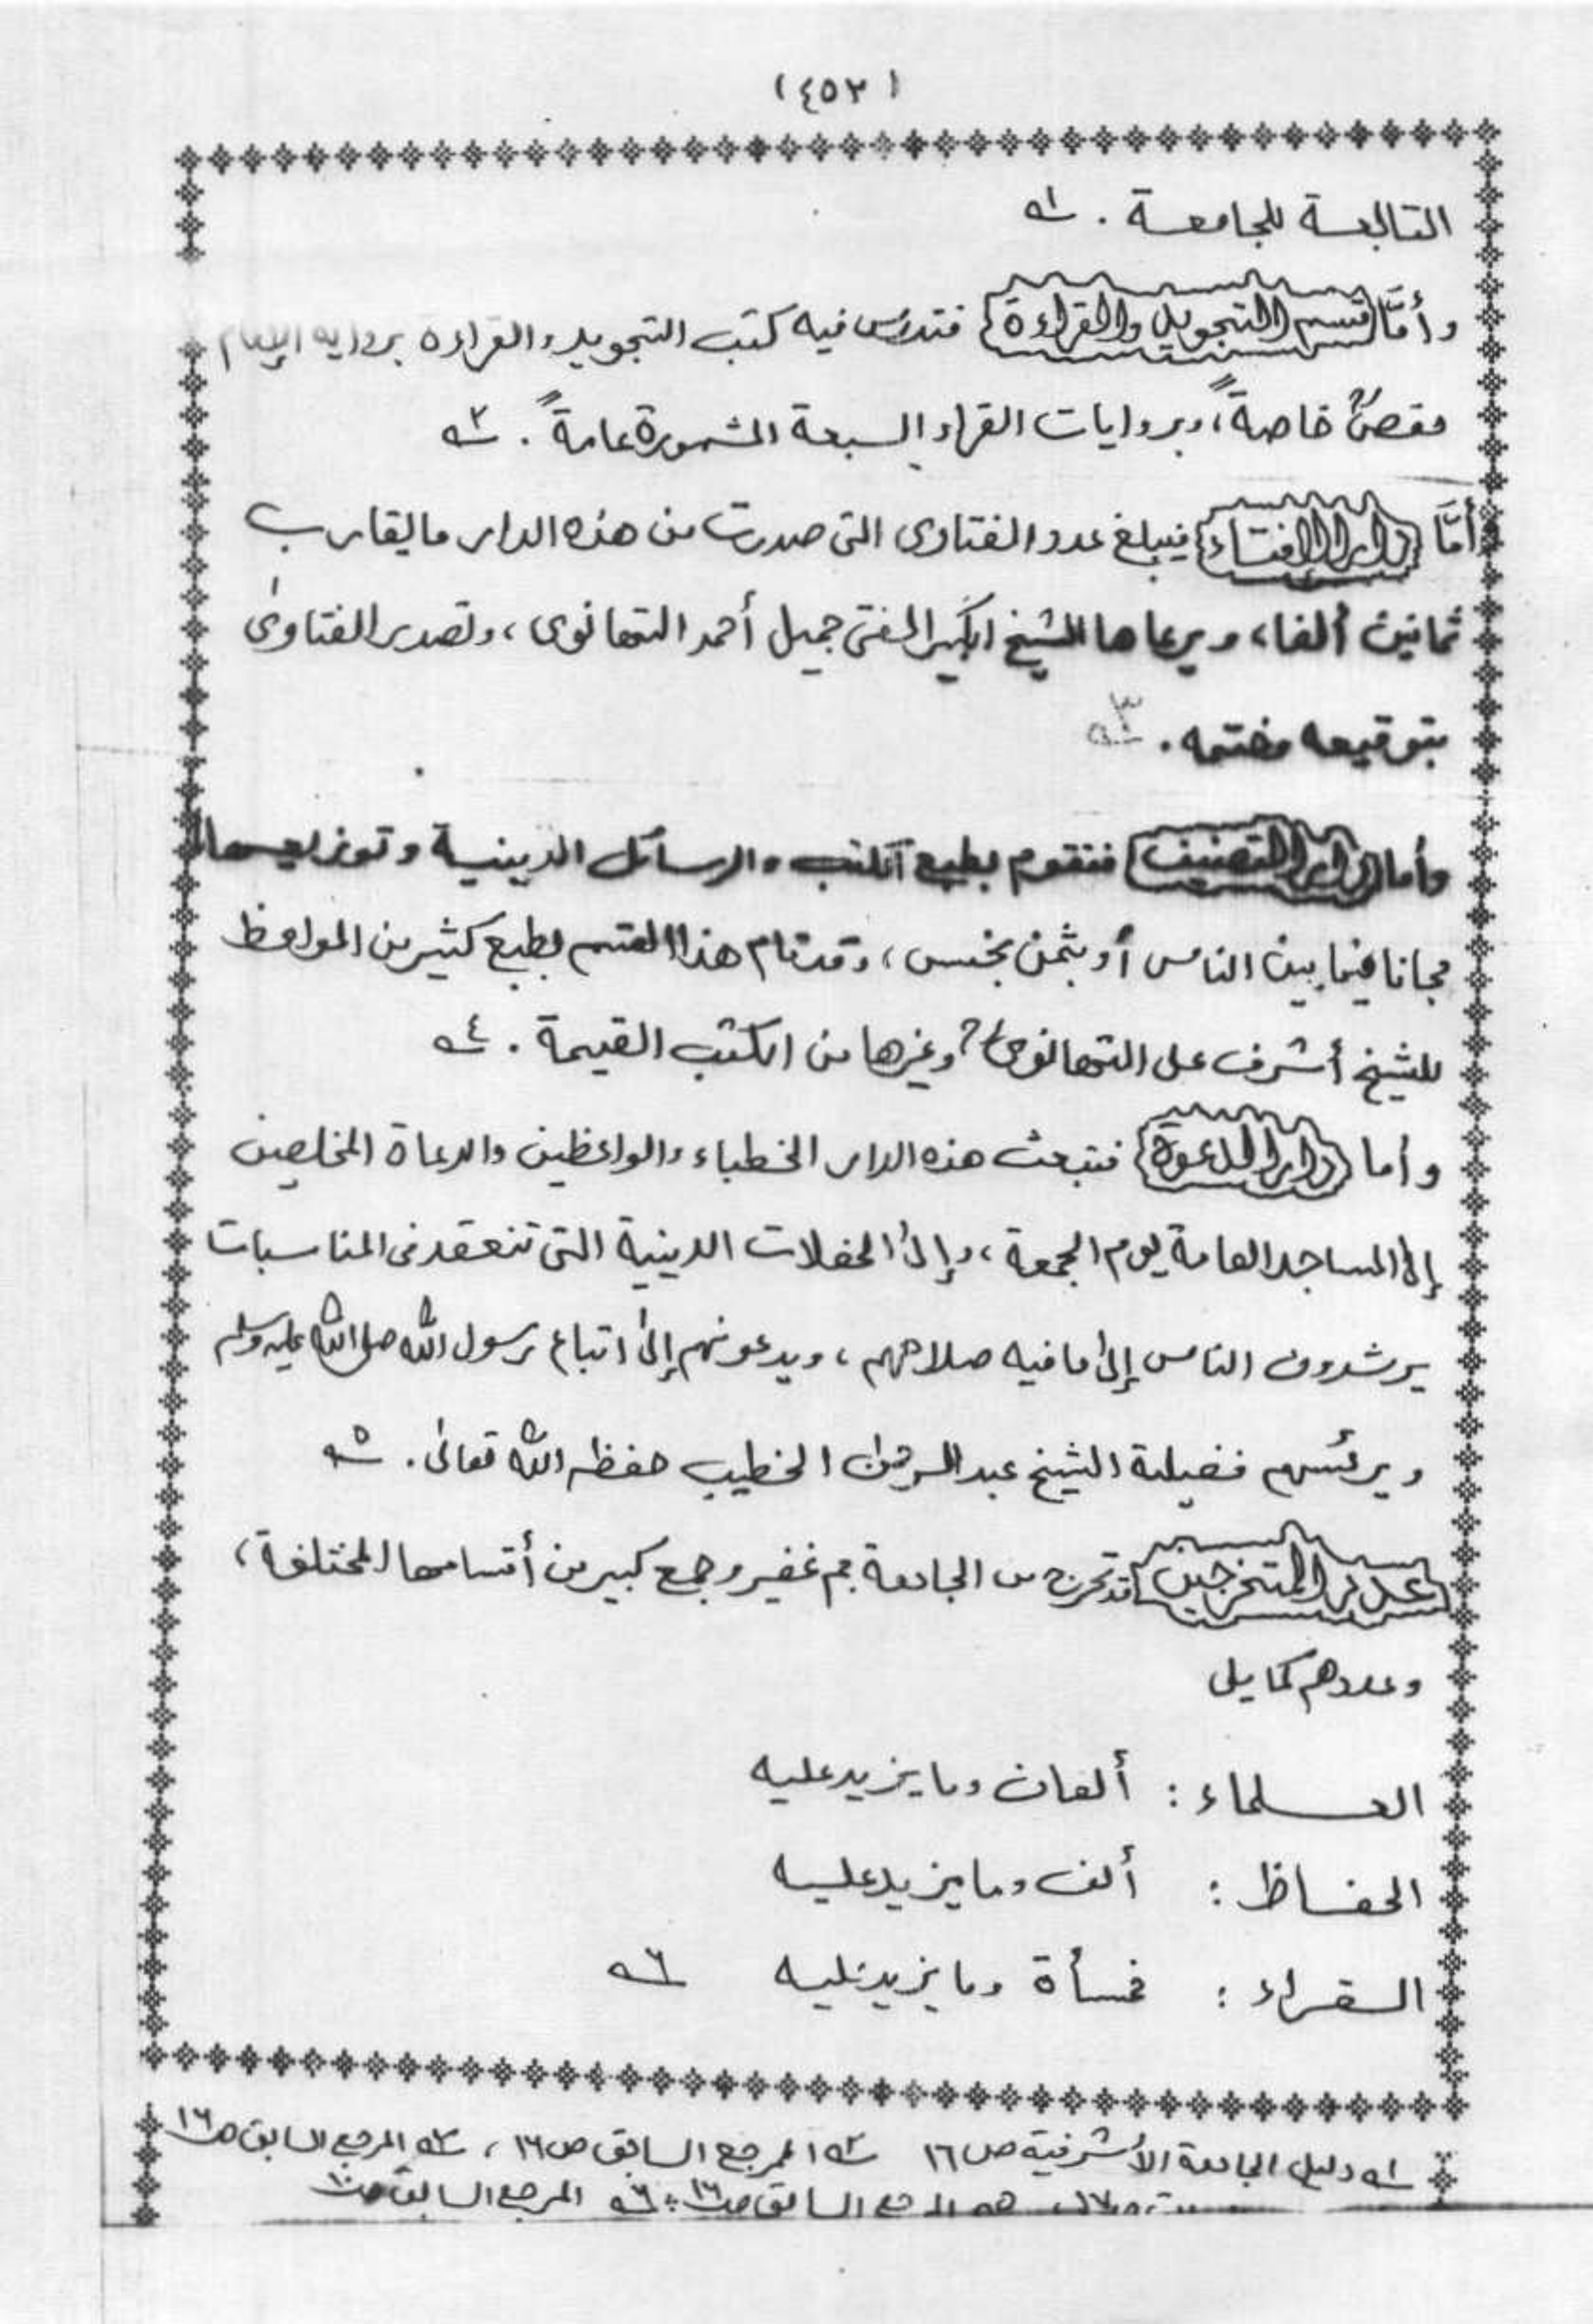 (٤٥٣)
التابعة للجامعة . ١ـه
وأمّا قسم التجويد والقراءة فتدرس فيه كتب التجويد والقراءة برواية الإمام
حفصؒ خاصةً، وبروايات القراء السبعة المشهورة عامةً . ٢ـه
أمّا دار الافتاء فيبلغ عدد الفتاوى التى صدرت من هذه الدار ما يقارب
ثمانين ألفا، ويرعاها الشيخ الكبير المفتى جميل أحمد التهانوى، وتصدر الفتاوىٰ
بتوقيعه وختمه . ٣ـه
وأما دار التصنيف فتقوم بطبع الكتب والرسائل الدينية وتوزيعها
مجانا فيما بين الناس أو بثمن بخس، وقد قام هذا القسم بطبع كثير من المواعظ
للشيخ أشرف على التهانوىؒ وغيرها من الكتب القيمة . ٤ـه
وأما دار الدعوة فتبعث هذه الدار الخطباء والواعظين والدعاة المخلصين
إلىٰ المساجد العامة يوم الجمعة، وإلىٰ الحفلات الدينية التى تنعقد فى المناسبات
يرشدون الناس إلىٰ ما فيه صلاحهم، ويدعونهم إلىٰ اتباع رسول الله صلى الله عليه وسلم
ويرئسهم فضيلة الشيخ عبد الرحمٰن الخطيب حفظه الله تعالىٰ. ٥ـه
عدد المتخرجين قد تخرج من الجامعة جم غفير وجمع كبير من أقسامها المختلفة،
وعددهم كما يلى
العلماء : ألفان وما يزيد عليه
الحفاظ : ألف وما يزيد عليه
القراء : خمسأة وما يزيد عليه ٦ـه
١ـه دليل الجامعة الأشرفية ص ١٦ ٢ـه المرجع السابق ص ١٦، ٣ـه المرجع السابق ص ١٦
المرجع السابق ص ١٦ ٦ـه المرجع السابق ص ١٠